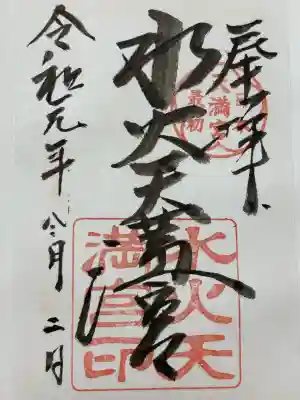 奉拝
水火天満宮
令和元年 月 二日
天満宮
最初
水火天
満宮印